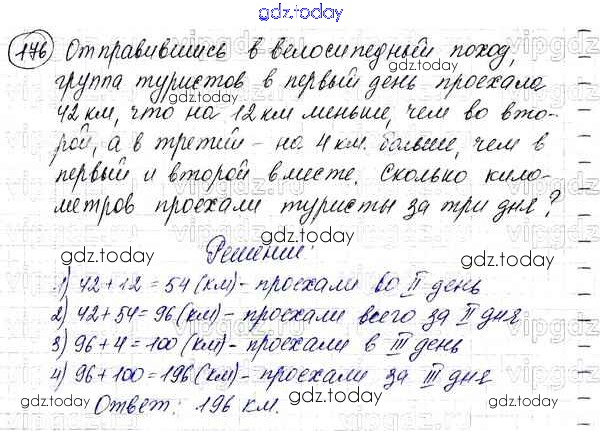 gdz.today
176 Отправившись в велосипедный поход,
группа туристов в первый день проехала
42 км, что на 12 км меньше, чем во вто-
рой, а в третий - на 4 км. больше, чем в
первый и второй вместе. Сколько кило-
метров проехали туристы за три дня?
gdz.today
gdz.today
Решение:
gdz.today
1) 42 + 12 = 54 (км) - проехали во II день
2) 42 + 54 = 96 (км) - проехали всего за II дня
3) 96 + 4 = 100 (км) - проехали в III день
4) 96 + 100 = 196 (км) - проехали за III дня
Ответ: 196 км.
gdz.today
gdz.today